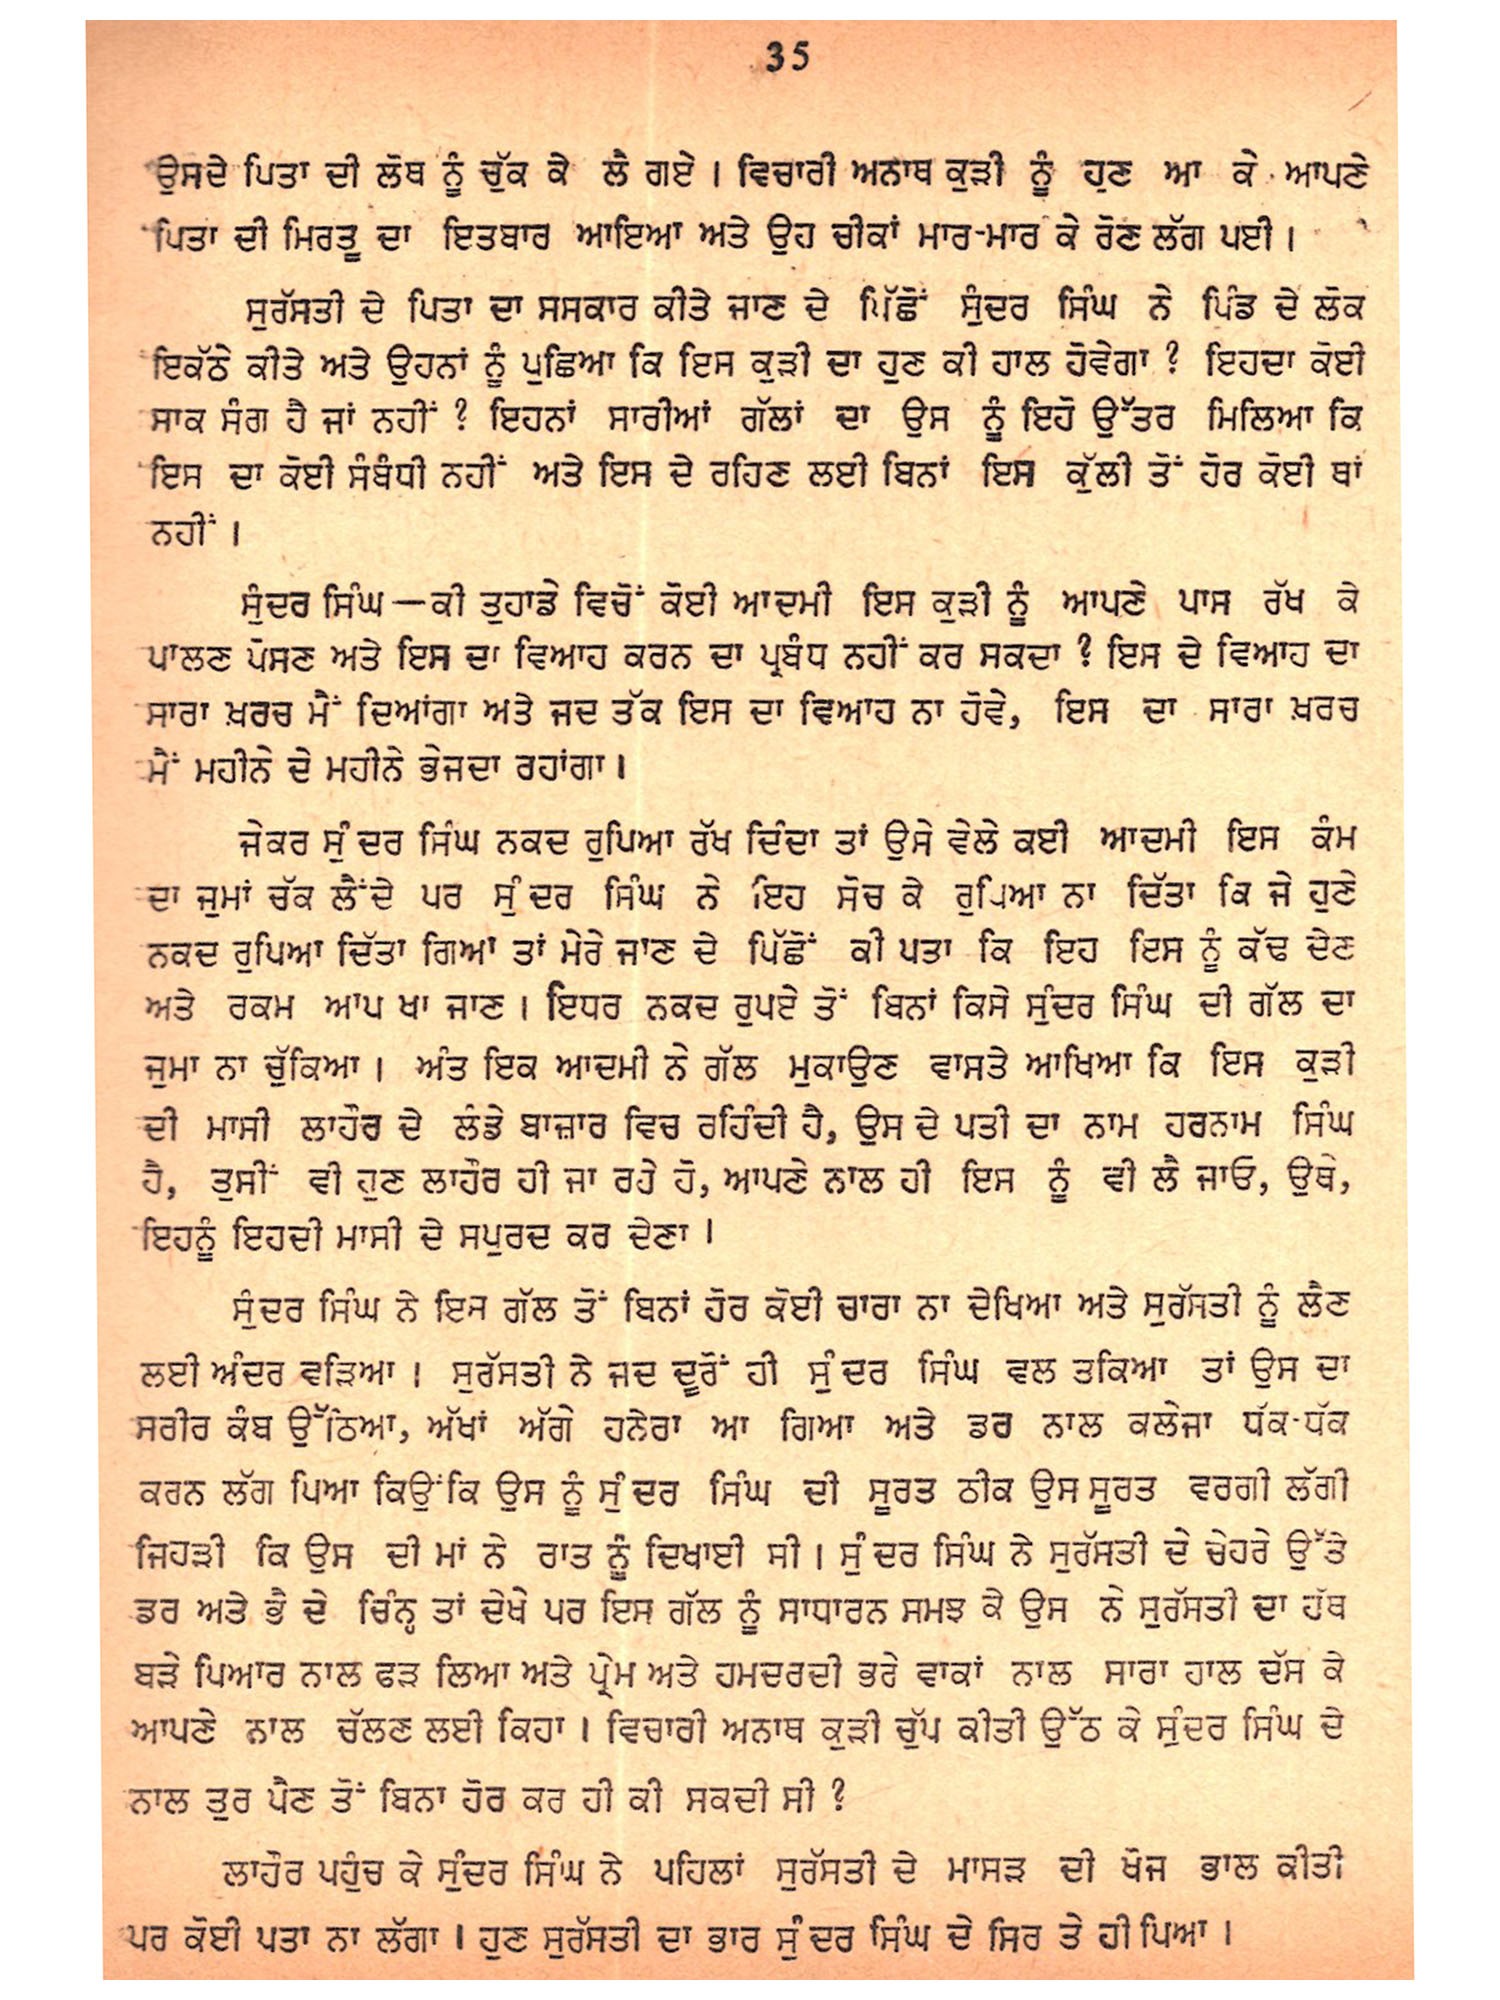 35
ਉਸਦੇ ਪਿਤਾ ਦੀ ਲੋਥ ਨੂੰ ਚੁੱਕ ਕੇ ਲੈ ਗਏ । ਵਿਚਾਰੀ ਅਨਾਥ ਕੁੜੀ ਨੂੰ ਹੁਣ ਆ ਕੇ ਆਪਣੇ
ਪਿਤਾ ਦੀ ਮਿਰਤੂ ਦਾ ਇਤਬਾਰ ਆਇਆ ਅਤੇ ਉਹ ਚੀਕਾਂ ਮਾਰ-ਮਾਰ ਕੇ ਰੋਣ ਲੱਗ ਪਈ ।
ਸੁਰੱਸਤੀ ਦੇ ਪਿਤਾ ਦਾ ਸਸਕਾਰ ਕੀਤੇ ਜਾਣ ਦੇ ਪਿੱਛੋਂ ਸੁੰਦਰ ਸਿੰਘ ਨੇ ਪਿੰਡ ਦੇ ਲੋਕ
ਇਕੱਠੇ ਕੀਤੇ ਅਤੇ ਉਹਨਾਂ ਨੂੰ ਪੁਛਿਆ ਕਿ ਇਸ ਕੁੜੀ ਦਾ ਹੁਣ ਕੀ ਹਾਲ ਹੋਵੇਗਾ ? ਇਹਦਾ ਕੋਈ
ਸਾਕ ਸੰਗ ਹੈ ਜਾਂ ਨਹੀਂ ? ਇਹਨਾਂ ਸਾਰੀਆਂ ਗੱਲਾਂ ਦਾ ਉਸ ਨੂੰ ਇਹੋ ਉੱਤਰ ਮਿਲਿਆ ਕਿ
ਇਸ ਦਾ ਕੋਈ ਸੰਬੰਧੀ ਨਹੀਂ ਅਤੇ ਇਸ ਦੇ ਰਹਿਣ ਲਈ ਬਿਨਾਂ ਇਸ ਕੁੱਲੀ ਤੋਂ ਹੋਰ ਕੋਈ ਥਾਂ
ਨਹੀਂ ।
ਸੁੰਦਰ ਸਿੰਘ — ਕੀ ਤੁਹਾਡੇ ਵਿਚੋਂ ਕੋਈ ਆਦਮੀ ਇਸ ਕੁੜੀ ਨੂੰ ਆਪਣੇ ਪਾਸ ਰੱਖ ਕੇ
ਪਾਲਣ ਪੋਸਣ ਅਤੇ ਇਸ ਦਾ ਵਿਆਹ ਕਰਨ ਦਾ ਪ੍ਰਬੰਧ ਨਹੀਂ ਕਰ ਸਕਦਾ ? ਇਸ ਦੇ ਵਿਆਹ ਦਾ
ਸਾਰਾ ਖ਼ਰਚ ਮੈਂ ਦਿਆਂਗਾ ਅਤੇ ਜਦ ਤੱਕ ਇਸ ਦਾ ਵਿਆਹ ਨਾ ਹੋਵੇ, ਇਸ ਦਾ ਸਾਰਾ ਖ਼ਰਚ
ਮੈਂ ਮਹੀਨੇ ਦੇ ਮਹੀਨੇ ਭੇਜਦਾ ਰਹਾਂਗਾ ।
ਜੇਕਰ ਸੁੰਦਰ ਸਿੰਘ ਨਕਦ ਰੁਪਿਆ ਰੱਖ ਦਿੰਦਾ ਤਾਂ ਉਸੇ ਵੇਲੇ ਕਈ ਆਦਮੀ ਇਸ ਕੰਮ
ਦਾ ਜੁਮਾਂ ਚੱਕ ਲੈਂਦੇ ਪਰ ਸੁੰਦਰ ਸਿੰਘ ਨੇ ਇਹ ਸੋਚ ਕੇ ਰੁਪਿਆ ਨਾ ਦਿੱਤਾ ਕਿ ਜੇ ਹੁਣੇ
ਨਕਦ ਰੁਪਿਆ ਦਿੱਤਾ ਗਿਆ ਤਾਂ ਮੇਰੇ ਜਾਣ ਦੇ ਪਿੱਛੋਂ ਕੀ ਪਤਾ ਕਿ ਇਹ ਇਸ ਨੂੰ ਕੱਢ ਦੇਣ
ਅਤੇ ਰਕਮ ਆਪ ਖਾ ਜਾਣ । ਇਧਰ ਨਕਦ ਰੁਪਏ ਤੋਂ ਬਿਨਾਂ ਕਿਸੇ ਸੁੰਦਰ ਸਿੰਘ ਦੀ ਗੱਲ ਦਾ
ਜੁਮਾ ਨਾ ਚੁੱਕਿਆ । ਅੰਤ ਇਕ ਆਦਮੀ ਨੇ ਗੱਲ ਮੁਕਾਉਣ ਵਾਸਤੇ ਆਖਿਆ ਕਿ ਇਸ ਕੁੜੀ
ਦੀ ਮਾਸੀ ਲਾਹੌਰ ਦੇ ਲੰਡੇ ਬਾਜ਼ਾਰ ਵਿਚ ਰਹਿੰਦੀ ਹੈ, ਉਸ ਦੇ ਪਤੀ ਦਾ ਨਾਮ ਹਰਨਾਮ ਸਿੰਘ
ਹੈ, ਤੁਸੀਂ ਵੀ ਹੁਣ ਲਾਹੌਰ ਹੀ ਜਾ ਰਹੇ ਹੋ, ਆਪਣੇ ਨਾਲ ਹੀ ਇਸ ਨੂੰ ਵੀ ਲੈ ਜਾਓ, ਉਥੇ,
ਇਹਨੂੰ ਇਹਦੀ ਮਾਸੀ ਦੇ ਸਪੁਰਦ ਕਰ ਦੇਣਾ ।
ਸੁੰਦਰ ਸਿੰਘ ਨੇ ਇਸ ਗੱਲ ਤੋਂ ਬਿਨਾਂ ਹੋਰ ਕੋਈ ਚਾਰਾ ਨਾ ਦੇਖਿਆ ਅਤੇ ਸੁਰੱਸਤੀ ਨੂੰ ਲੈਣ
ਲਈ ਅੰਦਰ ਵੜਿਆ । ਸੁਰੱਸਤੀ ਨੇ ਜਦ ਦੂਰੋਂ ਹੀ ਸੁੰਦਰ ਸਿੰਘ ਵਲ ਤਕਿਆ ਤਾਂ ਉਸ ਦਾ
ਸਰੀਰ ਕੰਬ ਉੱਠਿਆ, ਅੱਖਾਂ ਅੱਗੇ ਹਨੇਰਾ ਆ ਗਿਆ ਅਤੇ ਡਰ ਨਾਲ ਕਲੇਜਾ ਧੱਕ-ਧੱਕ
ਕਰਨ ਲੱਗ ਪਿਆ ਕਿਉਂਕਿ ਉਸ ਨੂੰ ਸੁੰਦਰ ਸਿੰਘ ਦੀ ਸੂਰਤ ਠੀਕ ਉਸ ਸੂਰਤ ਵਰਗੀ ਲੱਗੀ
ਜਿਹੜੀ ਕਿ ਉਸ ਦੀ ਮਾਂ ਨੇ ਰਾਤ ਨੂੰ ਦਿਖਾਈ ਸੀ । ਸੁੰਦਰ ਸਿੰਘ ਨੇ ਸੁਰੱਸਤੀ ਦੇ ਚੇਹਰੇ ਉੱਤੇ
ਡਰ ਅਤੇ ਭੈ ਦੇ ਚਿੰਨ੍ਹ ਤਾਂ ਦੇਖੇ ਪਰ ਇਸ ਗੱਲ ਨੂੰ ਸਾਧਾਰਨ ਸਮਝ ਕੇ ਉਸ ਨੇ ਸੁਰੱਸਤੀ ਦਾ ਹੱਥ
ਬੜੇ ਪਿਆਰ ਨਾਲ ਫੜ ਲਿਆ ਅਤੇ ਪ੍ਰੇਮ ਅਤੇ ਹਮਦਰਦੀ ਭਰੇ ਵਾਕਾਂ ਨਾਲ ਸਾਰਾ ਹਾਲ ਦੱਸ ਕੇ
ਆਪਣੇ ਨਾਲ ਚੱਲਣ ਲਈ ਕਿਹਾ । ਵਿਚਾਰੀ ਅਨਾਥ ਕੁੜੀ ਚੁੱਪ ਕੀਤੀ ਉੱਠ ਕੇ ਸੁੰਦਰ ਸਿੰਘ ਦੇ
ਨਾਲ ਤੁਰ ਪੈਣ ਤੋਂ ਬਿਨਾ ਹੋਰ ਕਰ ਹੀ ਕੀ ਸਕਦੀ ਸੀ ?
ਲਾਹੌਰ ਪਹੁੰਚ ਕੇ ਸੁੰਦਰ ਸਿੰਘ ਨੇ ਪਹਿਲਾਂ ਸੁਰੱਸਤੀ ਦੇ ਮਾਸੜ ਦੀ ਖੋਜ ਭਾਲ ਕੀਤੀ
ਪਰ ਕੋਈ ਪਤਾ ਨਾ ਲੱਗਾ । ਹੁਣ ਸੁਰੱਸਤੀ ਦਾ ਭਾਰ ਸੁੰਦਰ ਸਿੰਘ ਦੇ ਸਿਰ ਤੇ ਹੀ ਪਿਆ ।